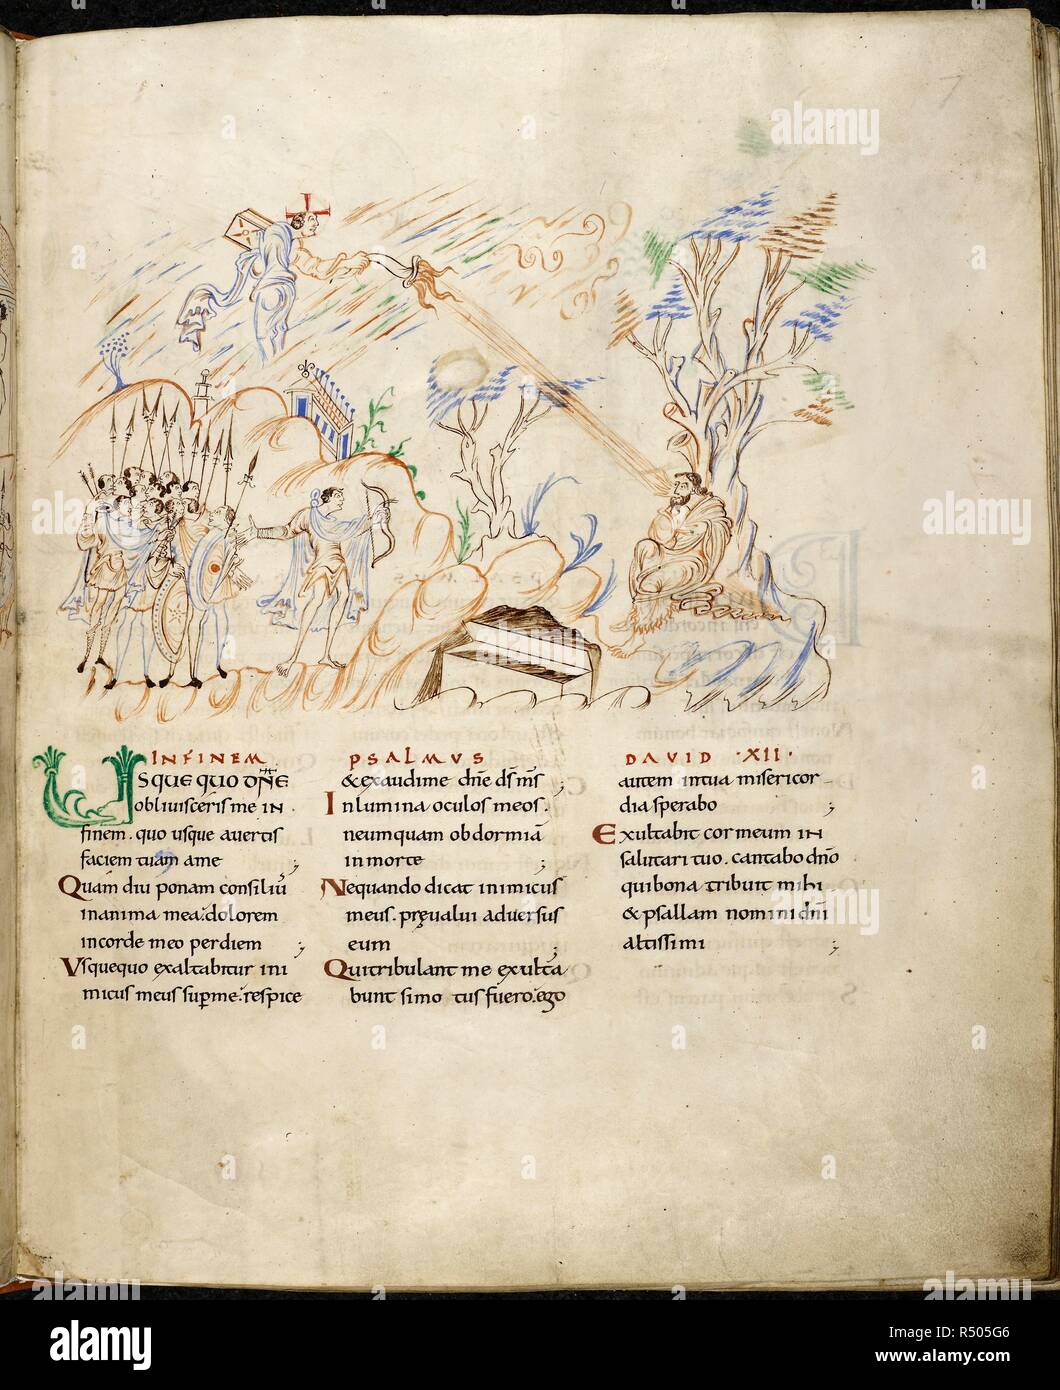 IN FINEM PSALMUS DAVID ·XII·
USQUE QUO DÑE
obliuisceris me IN
finem. quo usque auertis
faciem tuam a me ;
Quam diu ponam consiliū
in anima mea: dolorem
in corde meo per diem ;
Vsquequo exaltabitur ini
micus meus sup me: respice
& exaudi me dñe ds m̄s ;
Inlumina oculos meos.
ne umquam obdormiā
in morte ;
Nequando dicat inimicus
meus. pręualui aduersus
eum ;
Qui tribulant me exulta
bunt si motus fuero. ego
autem in tua misericor
dia sperabo ;
Exultabit cor meum IN
salutari tuo. cantabo dño
qui bona tribuit mihi
& psallam nomini dñi
altissimi ;
alamy
Image ID: R505G6
www.alamy.com